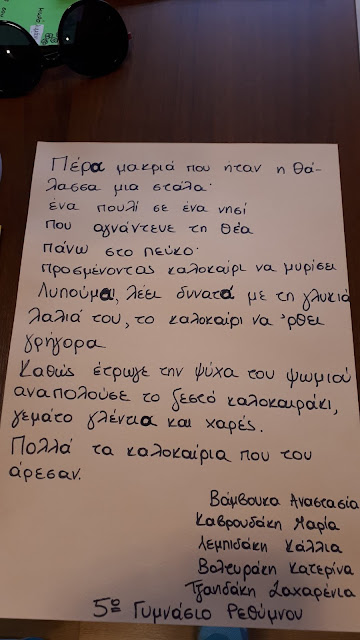 Πέρα μακριά που ήταν η θά-
λασσα μια στάλα·
ένα πουλί σε ένα νησί
που αγνάντευε τη θέα
πάνω στο πεύκο·
προσμένοντας καλοκαίρι να μυρίσει
Λυπούμαι, λέει δυνατά με τη γλυκιά
λαλιά του, το καλοκαίρι να 'ρθει
γρήγορα
Καθώς έτρωγε την ψύχα του ψωμιού
αναπολούσε το ζεστό καλοκαιράκι,
γεμάτο γλέντια και χαρές.
Πολλά τα καλοκαίρια που του
άρεσαν.
Βάμβουκα Αναστασία
Καβρουδάκη Μαρία
Λεμπιδάκη Κάλλια
Βολευράκη Κατερίνα
Τζανιδάκη Ζαχαρένια
5ο Γυμνάσιο Ρεθύμνου